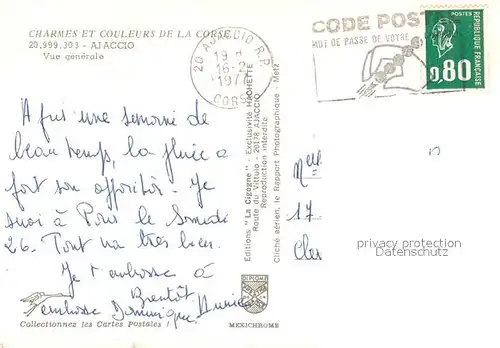 CHARMES ET COULEURS DE LA CORSE
20.999.303 - AJACCIO
Vue générale
20 AJACCIO R.P.
19 H
16-2
197
CORSE
CODE POST
MOT DE PASSE DE VOTRE
POSTES
0,80
REPUBLIQUE FRANÇAISE
Après une semaine de
beau temps, la pluie a
fait son apparition. Je
suis à Paris le Samedi
26. Tout va très bien.
Je t'embrasse à
Bientôt
embrasse Dominique
Editions "La Cigogne" - Exclusivité HACHETTE
Route du Vittulo - 20178 AJACCIO
Reproduction interdite
Cliché aérien, le Rapport Photographique - Metz
17
privacy protection
Datenschutz
DIPLOME
Collectionnez les Cartes Postales !
MEXICHROME